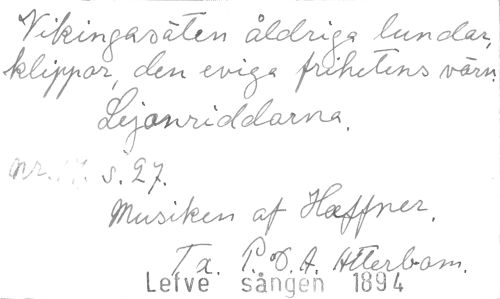 Vikingasäten åldriga lundar,
klippor, den eviga frihetens värn.
Lejonriddarna.
nr. 17. s. 27.
Musiken af Hæffner.
Tx. P. D. A. Atterbom.
Lefve sången 1894